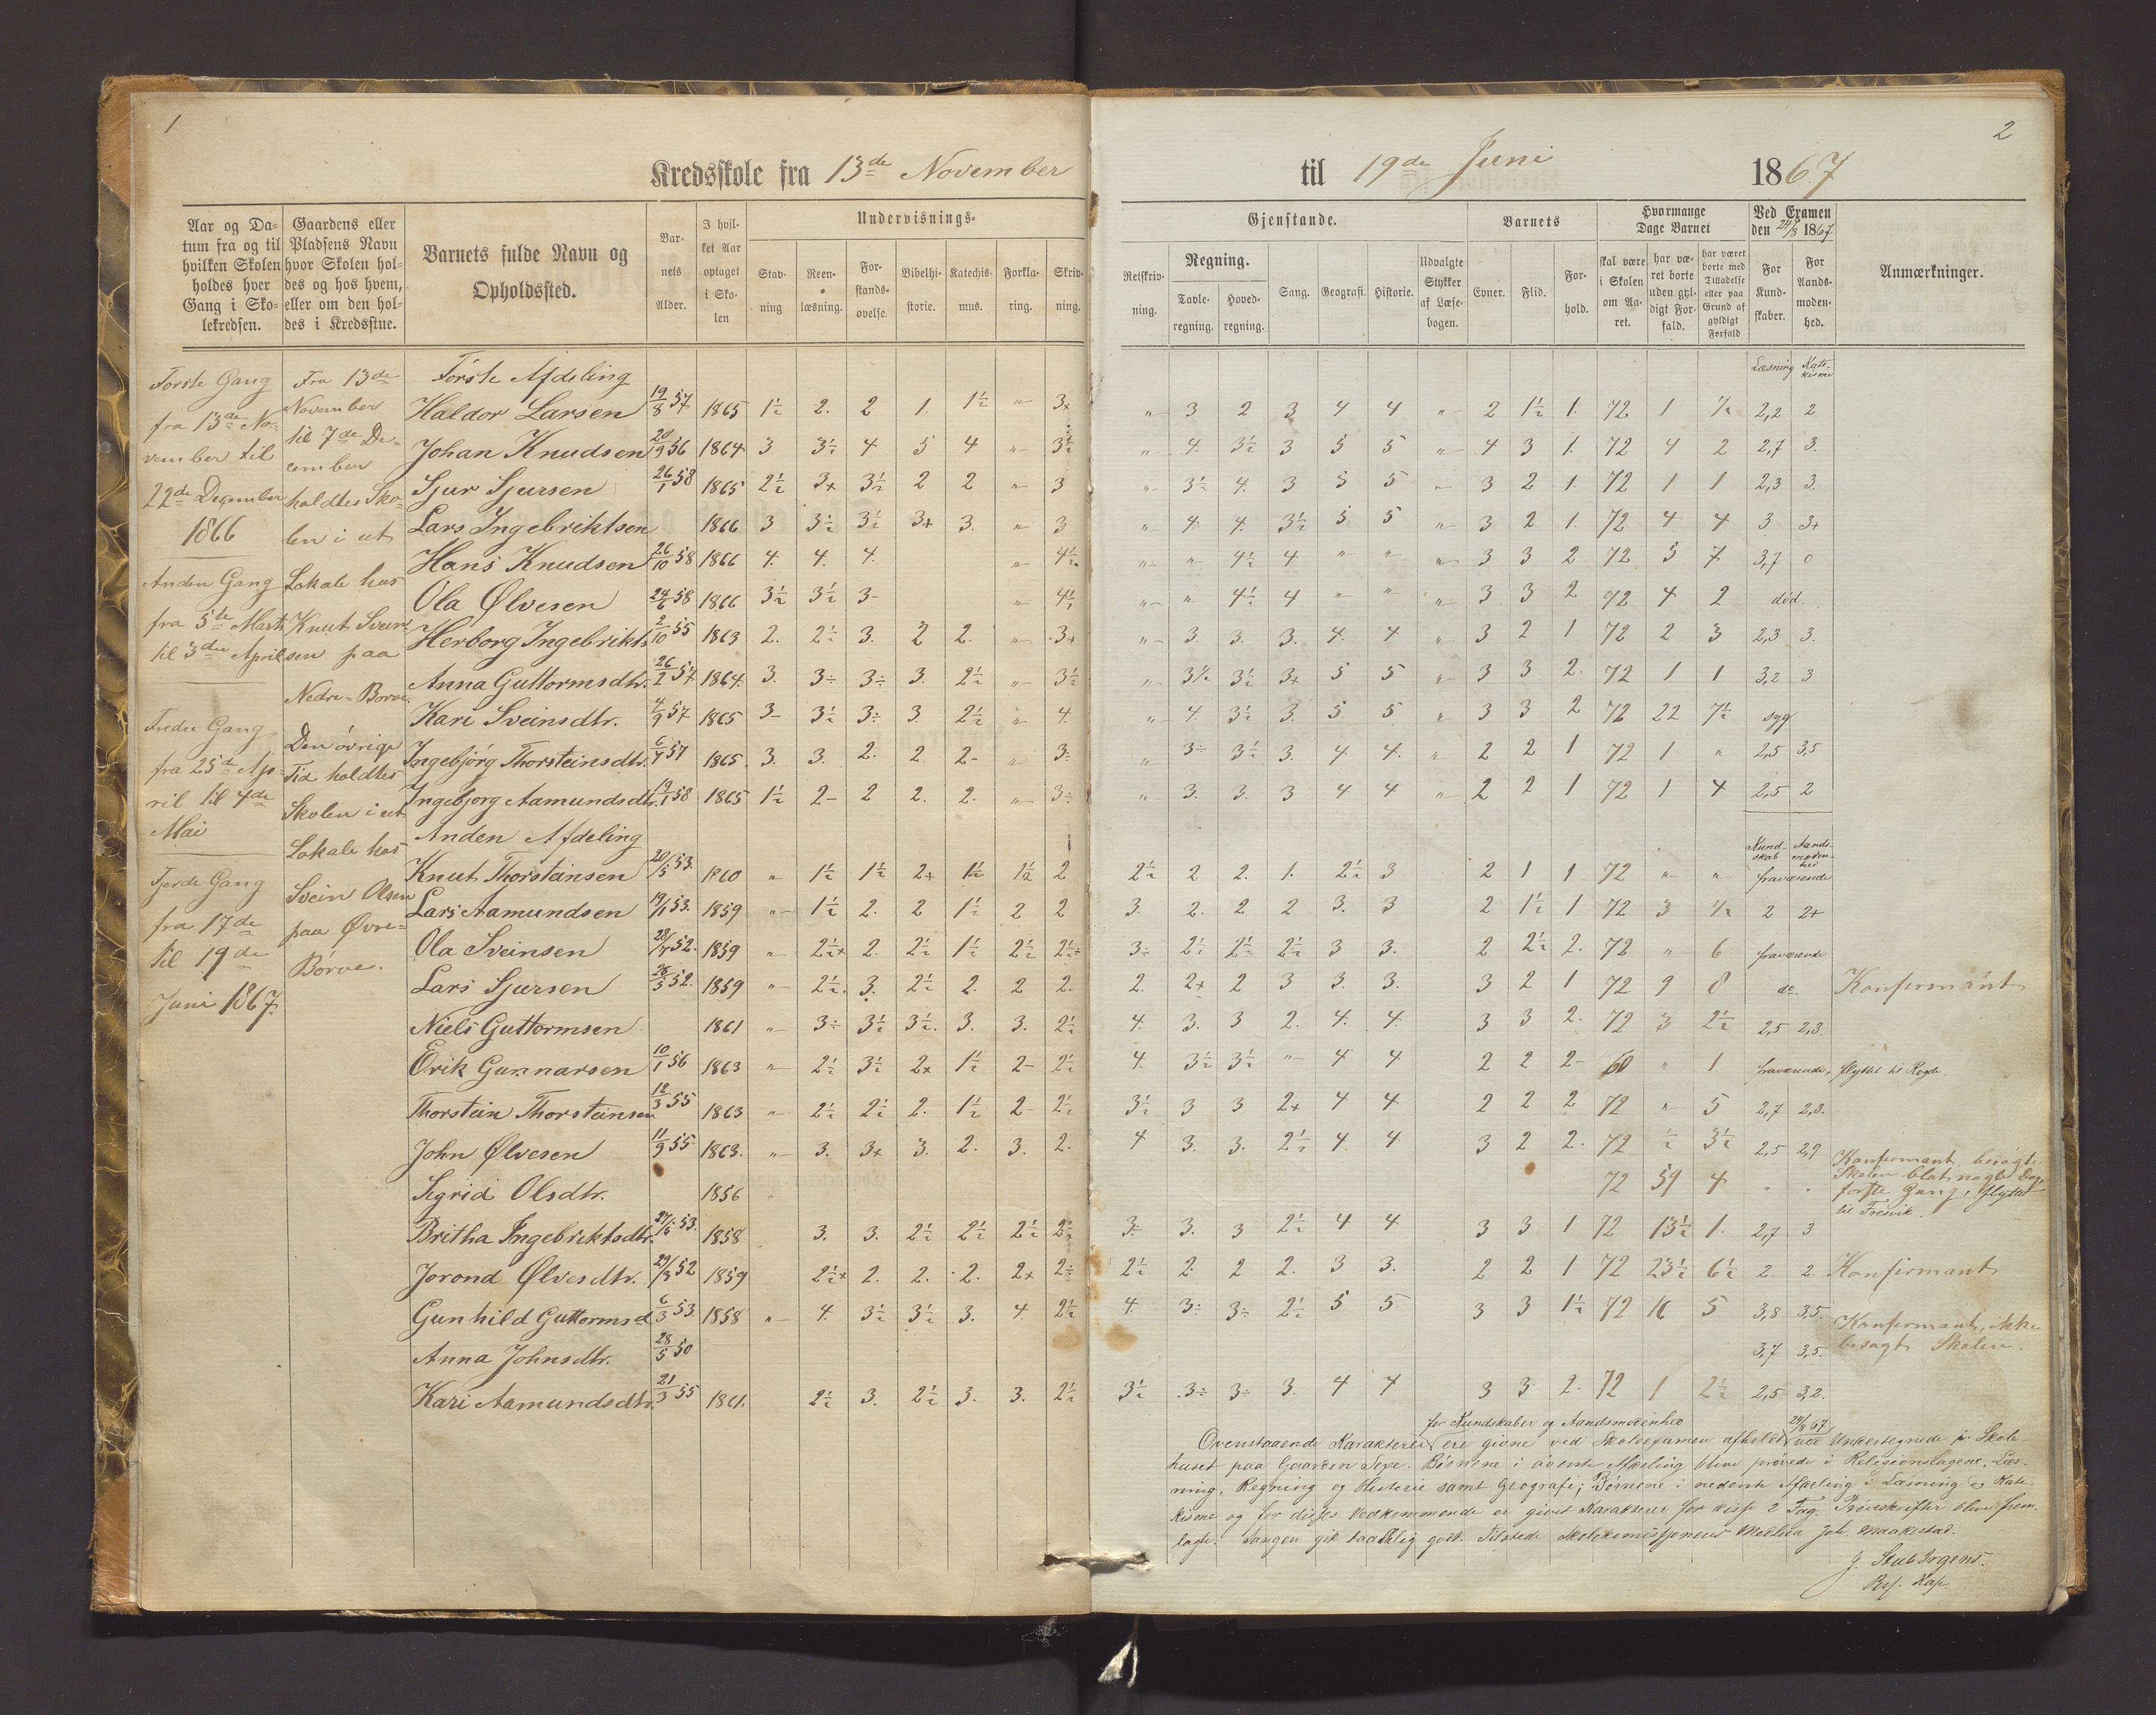 1
2
Kredsskole fra 13de November til 19de Juni 1867
Aar og Datum fra og til hvilken Skolen holdes hver Gang i Skolekredsen.
Gaardens eller Pladsens Navn hvor Skolen holdes og hos hvem, eller om den holdes i Kredsstue.
Barnets fulde Navn og Opholdssted.
Barnets Alder.
I hvilket Aar optaget i Skolen
Undervisnings-Gjenstande.
Stavning
Reenlæsning.
Forstandsøvelse.
Bibelhistorie.
Katechismus.
Forklaring.
Skrivning.
Retskrivning.
Regning.
Tavleregning.
Hovedregning.
Sang.
Geografi.
Historie.
Udvalgte Stykker af Læsebogen.
Barnets
Evner.
Flid.
Forhold.
Hvormange Dage Barnet
skal være i Skolen om Aaret.
har været borte uden gyldigt Forfald.
har været borte med Tilladelse eller paa Grund af gyldigt Forfald
Ved Examen den 24/8 1867
For Kundskaber.
For Aandsmodenhed.
Anmærkninger.
Første Gang
fra 13de No-
vember til
22de December
1866
Anden Gang
fra 5te Marts
til 3die April
Tredie Gang
fra 25de Ap-
ril til 4de
Mai
Fjerde Gang
fra 17de
til 19de
Juni 1867.
Fra 13de
November
til 7de De-
cember
holdtes Sko-
len i et
Lokale hos
Knut Svein-
sen paa
Nedre-Børve.
Den øvrige
Tid holdtes
Skolen i et
Lokale hos
Svein Olsen
paa Øvre-
Børve.
Første Afdeling Læsning Katekisme
Haldor Larsen 19/8 57 1865 1½ 2. 2 1. 1½ " 3+ " 3 2 3 4 4 " 2 1½ 1. 72 1 ½ 2,2 2
Johan Knudsen 20/9 56 1864 3 3½ 4 5 4 " 3½ " 4. 3½ 3 5 5 " 4 3 1. 72 4 2 2,7 3.
Sjur Sjursen 26/1 58 1865 2½ 3+ 3½ 2 2 " 3 " 3½ 4. 3 5 5 " 3 2 1. 72 1 1 2,3 3.
Lars Ingebriktsen 1866 3 3½ 3½ 3+ 3. " 3 " 4. 4. 3½ 5 5 " 3 2 1. 72 4 4 3 3+
Hans Knudsen 26/10 58 1866 4. 4. 4. " 4½ " " 4½ 4 " " " 3 3 2 72 5 7 3,7 0
Ola Ølvesen 24/6 58 1866 3½ 3½ 3- " 4½ " " 4½ 4 " " " 3 3 2 72 4 2 död.
Herborg Ingebrikts. 2/10 55 1863 2. 2½ 3. 2 2. " 3+ " 3. 3. 3. 4. 4. " 3 2 1 72 2 3 2,3 3.
Anna Guttormsdtr. 26/2 57 1864. 3. 3÷ 3÷ 3. 2½ " 3½ " 3½ 3½ 3+ 5 5 " 3 3 2. 72 1 1 3,2 3
Kari Sveinsdtr. 4/9 57 1865 3- 3½ 3÷ 3. 2½ " 4. " 4. 3½ 3. 5 5 " 3 3 2 72 22 7½ syg
Ingebjørg Thorsteinsdtr. 6/4 57 1865. 3. 3. 2. 2. 2- " 3÷ " 3÷ 3½ 3. 4. 4. " 2 2 1 72 1 " 2,5 3,5
Ingebjørg Aamundsdtr. 19/1 58 1865 1½ 2- 2 2. 2. " 3÷ " 3. 3. 3 4 4 " 2 2 1 72 1 4 2,5 2
Anden Afdeling Kundskab Aandsmodenhed
Knut Thorsteinsen 20/5 53. 1860 " 1½ 1½ 2+ 1½ 1½ 2 2½ 2 2. 1. 2½ 3 2 1 1 72 " " fraværende
Lars Aamundsen 19/11 53. 1859 " 1½ 2. 2 1½ 2 2 3. 2. 2 2 3. 3 2 1½ 1 72 3 ½ 2 2+
Ola Sveinsen 52. 1859 " 2½+ 2. 2½ 1½ 2½ 2½+ 3÷ 2½ 2½ 2½ 3 3. 2 2½ 2. 72 " 6 fraværende
Lars Sjursen 52. 1859 " 2½. 3. 2½ 2. 2 2. 2. 2+ 2 3 3. 3. 3 2 1 72 9 8 do. Konfirmant
Niels Guttormsen 1861 " 3÷ 3½ 3½. 3. 3. 2½ 4. 3. 3 2. 4. 4. 3 3 2. 72 3 2½ 2,5 2,3.
Erik Gunnarsen 10/1 56 1863 " 2½ 3½ 2+ 1½ 2- 2½ 4. 3½ 3½ " 4 4 2 2 2- 60 " 1 fraværende, flyttet til
Thorstein Thorsteinsen 12/3 55 1863 " 2½ 2½ 2. 1½ 2- 2½ 3½ 3 3 2+ 4 4 2 2 2 72 " 5 2,7 2,3.
John Ølvesen 11/9 55 1863. " 3. 3+ 3. 2. 3. 2. 4 3. 3. 2½ 4. 4 3 2 2. 72 ½ 3½ 2,5 2,9
Sigrid Olsdtr. 1856 " 72 59 4 " " Konfirmant, besøgte Skolen blot nogle Dage første Gang, flyttet til Tresvik.
Britha Ingebriktsdtr. 27/5 53. 1858 3. 3. 2½ 2½ 2½ 2½ 3÷ 3. 3 2½ 4 4 3 3 1 72 13½ 1. 2,7 3
Jorond Ølvesdtr. 29/3 52 1859 2½+ 2. 2. 2. 2+ 2÷ 2½ 2. 2 2. 3 3. 2 2 1 72 23½ 6½ 2. 2. Konfirmant
Gunhild Guttormsd. 6/3 53. 1858 " 4. 3½ 3½ 3. 4. 2½ 4. 3÷ 3÷ 2½ 5 5 3 3 1½ 72 16 5 3,8 3,5.
Anna Johnsdtr. 28/5 50 3,7 3,5. Konfirmant, ikke besøgt Skolen.
Kari Aamundsdtr. 21/3 55 1861. 2½ 3. 2½ 3. 3. 2½ 3½ 3÷ 3÷ 3. 4 4 3 3 2. 72 1 2½ 2,5 3,2.
for Kundskaber og Aandsmodenhed 24/8 67
Ovenstaaende Karakterer ere givne ved Skoleexamen afholdt ved Undertegnede paa Skole-
huset paa Gaarden Sexe. Børnene i øverste Afdeling bleve prøvede i Religionsfagene, Læs-
ning, Regning og Historie samt Geografi; Børnene i nederste Afdeling i Læsning og Kate-
kisme og for disses Vedkommende er givet Karakterer for disse 2 Fag. Prøveskrifter bleve frem-
lagte. Sangen gik taalelig godt. Tilstede Skolekommissionens Medlem Joh. Maakestad.
J. Stub Irgens.
Res. Kap.